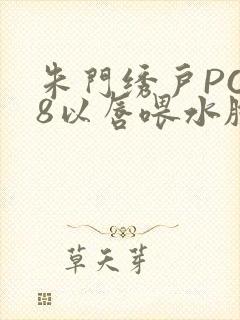 朱門绣户PO
8以唇喂水
草天芽